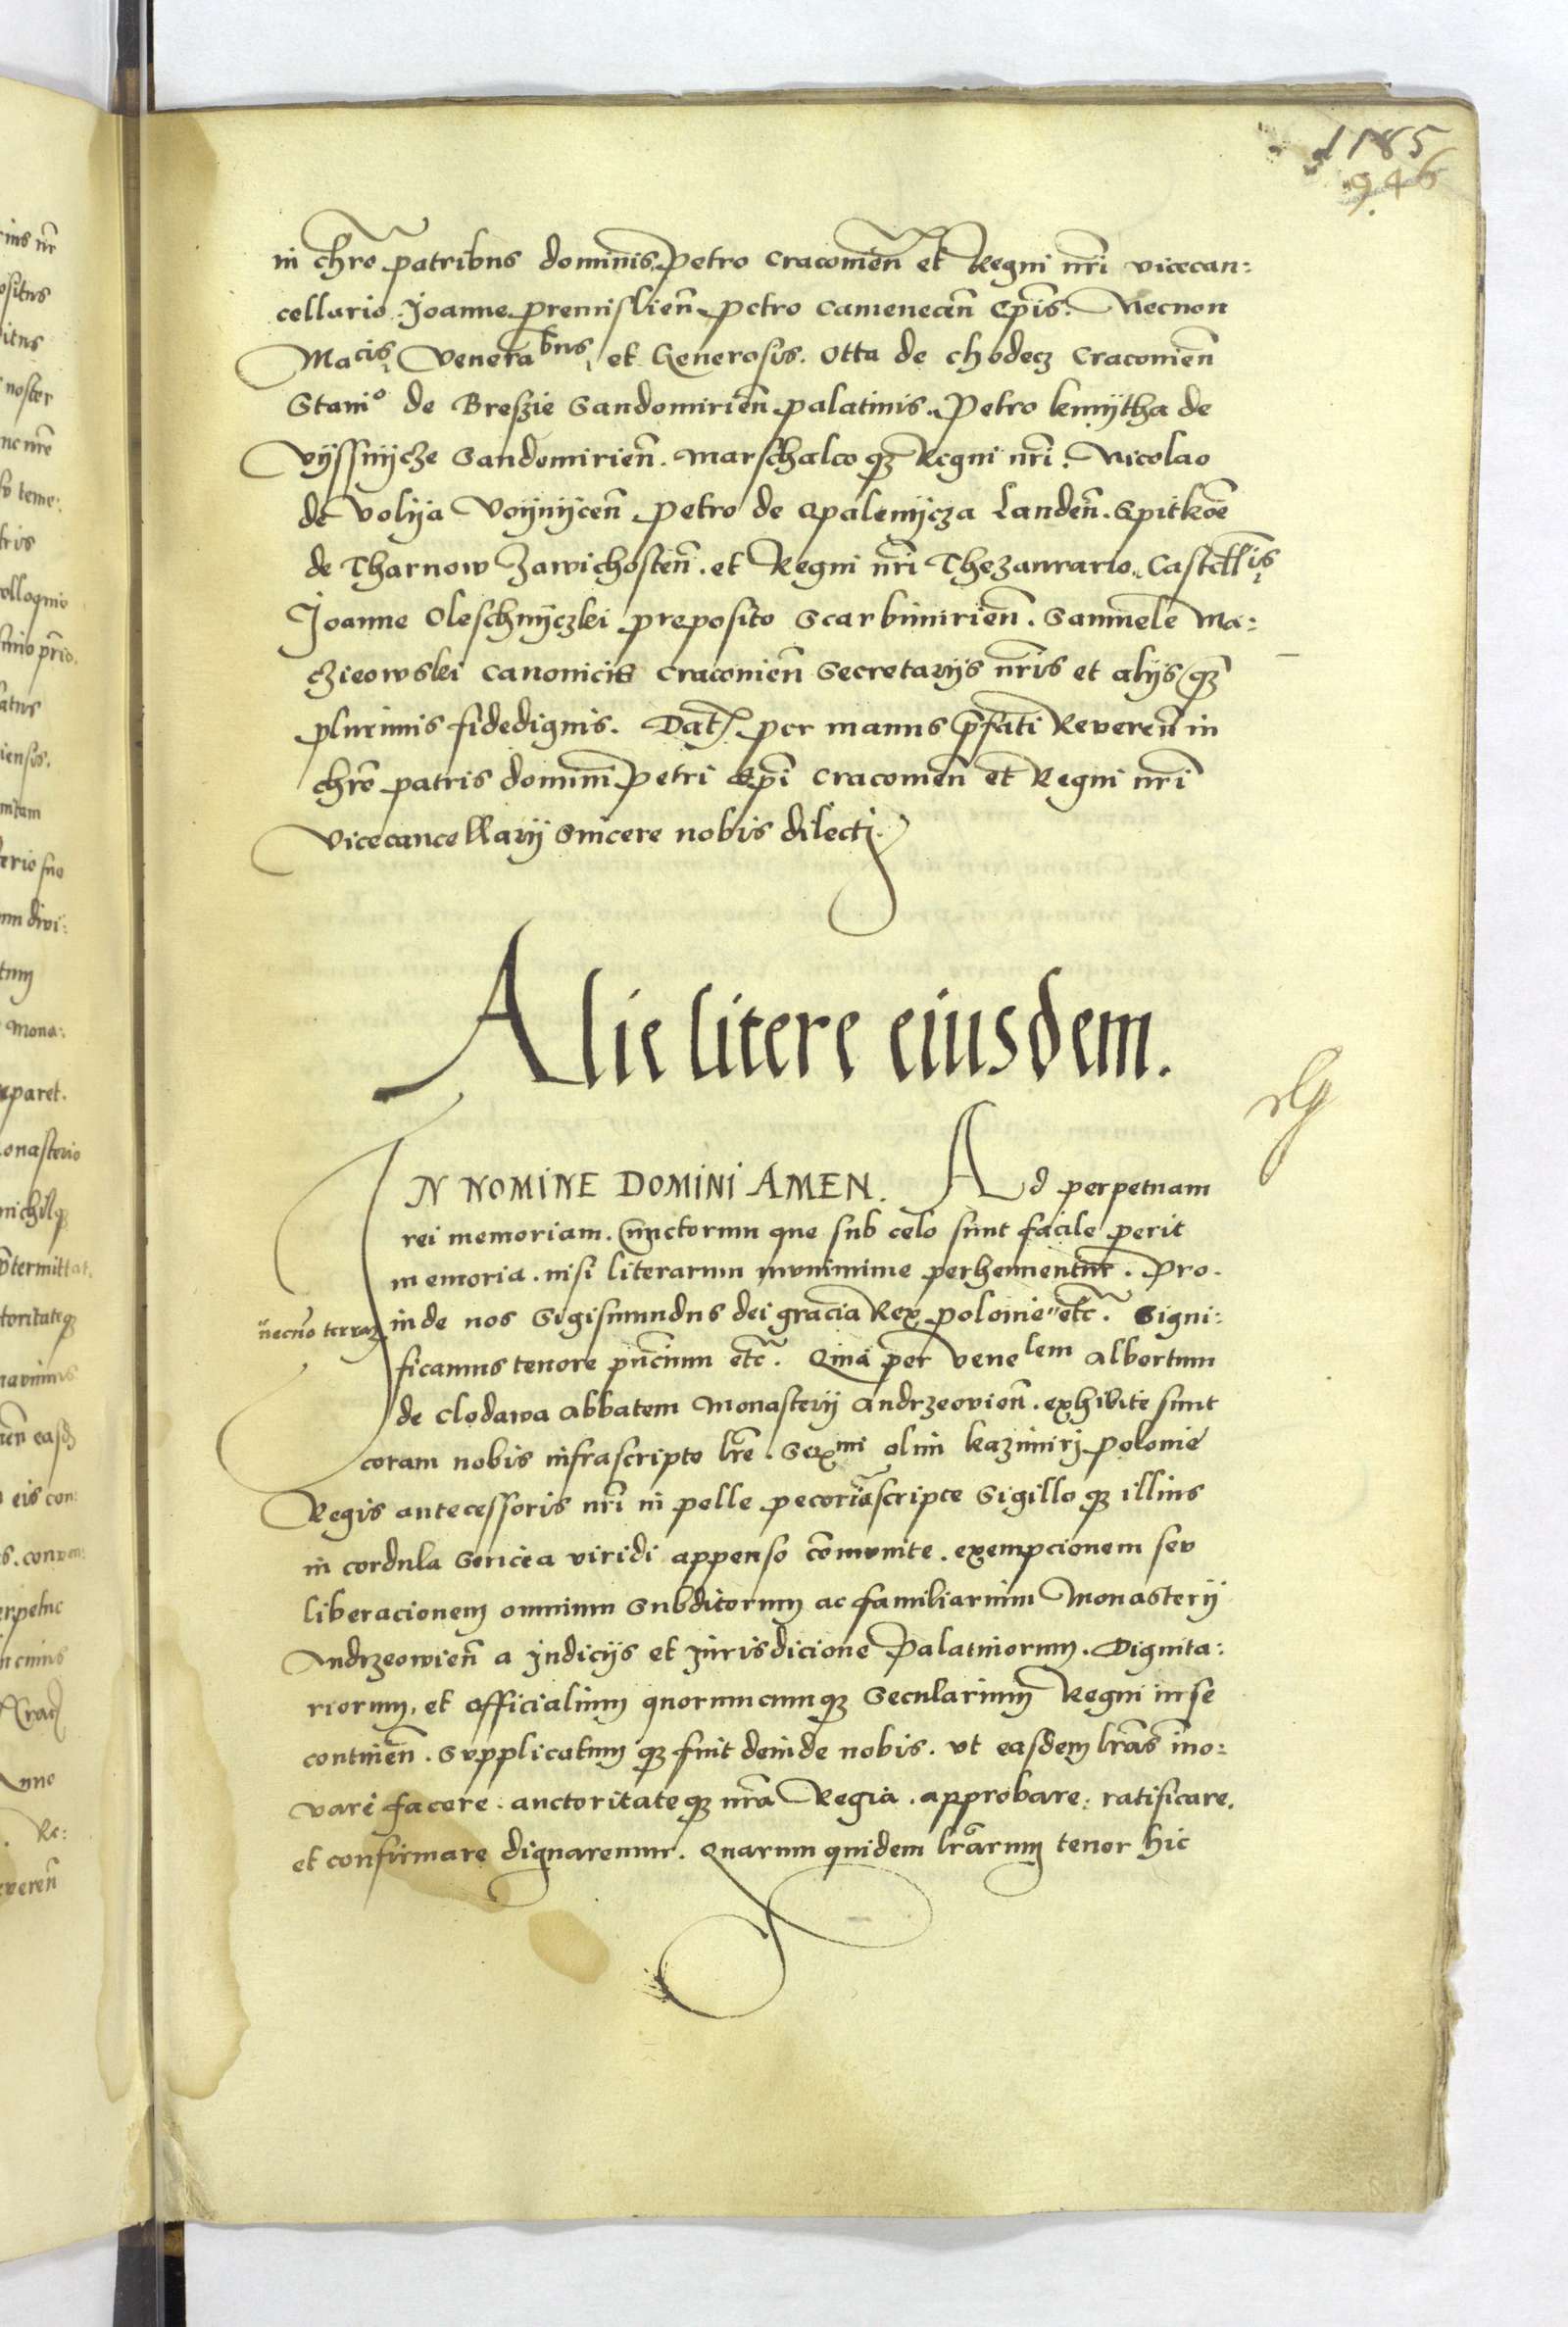 185
946
in chro patribus dominis Petro Cracovien et Regni nri vicecan:
cellario. Joanne premislien Petro Camenecen Epis. Necnon
Macis, Venerabus, et Generosis. Otta de Chodecz Cracovien
Stanio de Breszie Sandomirien palatinis. Petro kmytha de
Vyssnycze Sandomirien. Marschalco qz Regni nri. Nicolao
de Volya Voynycen Petro de Opalenycza Landen. Spitkone
de Tharnow Zawichosten. et Regni nri Thezaurario. Castellis
Joanne Oleschnyczki preposito Scarbimirien. Samuele Ma:
czieowski Canonicis Cracovien Secretariis nris et aliis qz
plurimis fidedignis. Dat per manus pfati Reveren in
chro patris domini Petri Epi Cracovien et Regni nri
Vicecancellarii Sincere nobis dilecti.
Alie litere eiusdem.
IN NOMINE DOMINI AMEN. Ad perpetuam
rei memoriam. Cunctorum que sub celo sunt facile perit
memoria. nisi literarum munimine perhennentur. Pro.
inde nos Sigismundus dei gracia Rex polonie "etc. Signi:
"necno terraz
ficamus tenore pncium etc. Quia per venelem Albertum
de Clodawa Abbatem Monasterii Andrzeovien. exhibite sunt
coram nobis infrascripte lre. Sermi olim kazimiri Polonie
Regis antecessoris nri in pelle pecoria scripte Sigillo qz illius
in cordula Sericea viridi appenso communite. exempcionem seu
liberacionem omnium Subditorum ac familiarium Monasterii
Andrzeowien a Judiciis et Jurisdicione Palatinorum. Dignita:
riorum, et Officialium quorumcumqz Secularium Regni in se
continen. Supplicatum qz fuit deinde nobis. ut easdem lras inno:
vari facere. auctoritateqz nra Regia. approbare: ratificare.
et confirmare dignaremur. Quarum quidem lrarum tenor hic